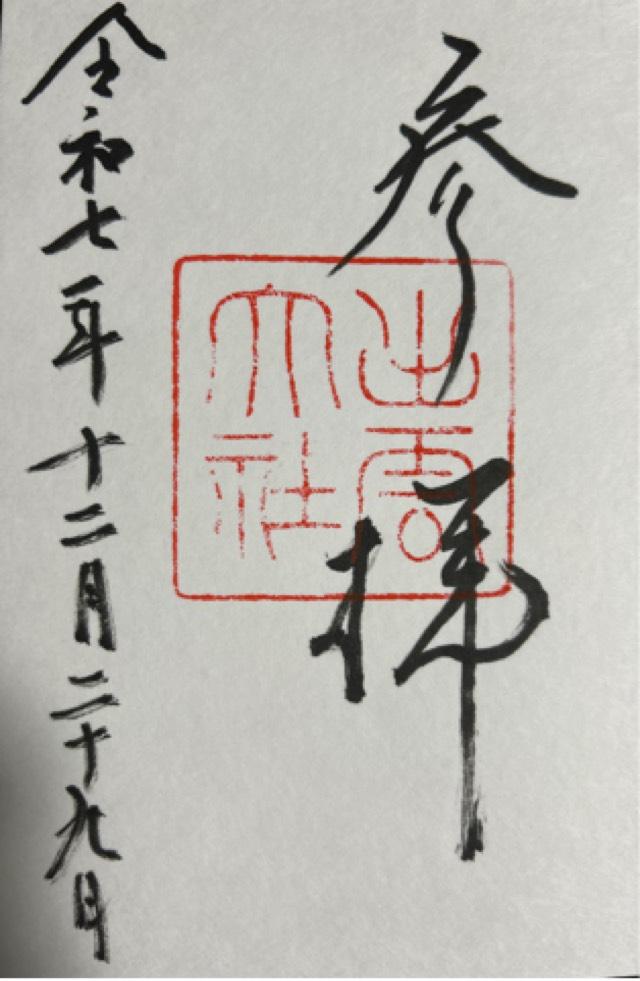 参拝
出雲
大社
令和七年十二月二十九日